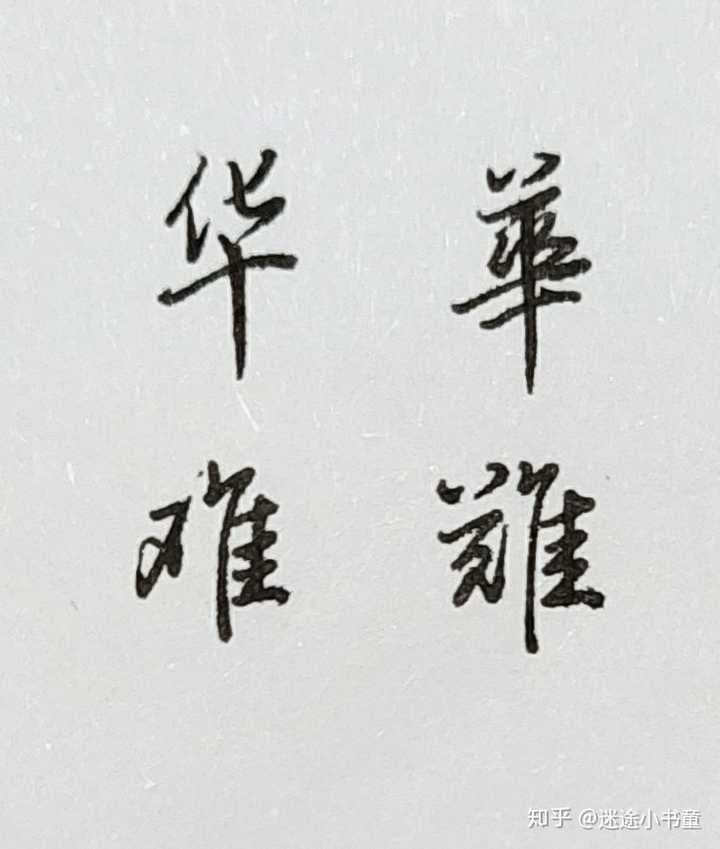 华 華
难 難
知乎 @迷途小书童